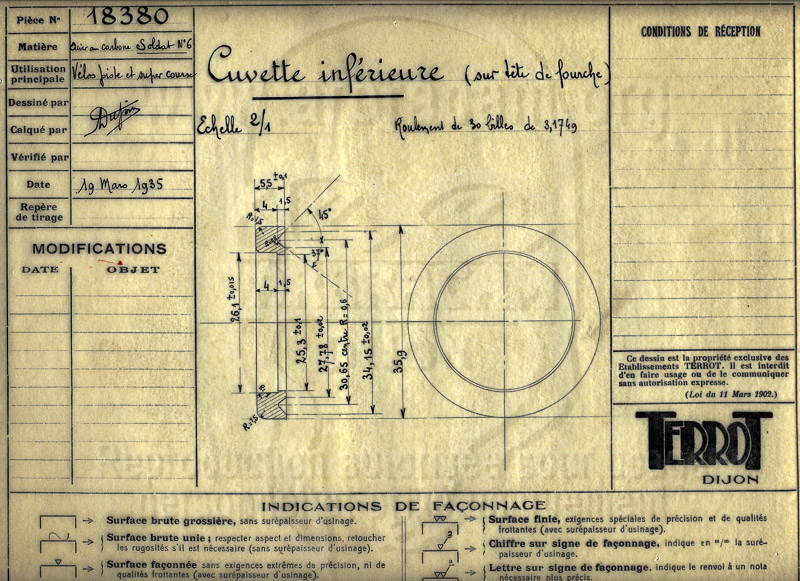 Pièce N° 18380
Matière Acier au carbone Soldat N°6
Utilisation principale Vélos piste et super course
Dessiné par
Calqué par
Vérifié par
Date 19 Mars 1935
Repère de tirage
MODIFICATIONS
DATE OBJET
Cuvette inférieure (sur tête de fourche)
Echelle 2/1
Roulement de 30 billes de 3,1749
5,5 ±0,1
4 1,5
R=1,5
45°
37°
4 1,5
26,1 ±0,015
25,3 ±0,1
27,78 ±0,02
30,65 centre R = 0,6
34,15 ±0,02
35,9
R=1,5
CONDITIONS DE RÉCEPTION
Ce dessin est la propriété exclusive des
Etablissements TERROT. Il est interdit
d'en faire usage ou de le communiquer
sans autorisation expresse.
(Loi du 11 Mars 1902.)
TERROT
DIJON
INDICATIONS DE FAÇONNAGE
Surface brute grossière, sans surépaisseur d'usinage.
Surface brute unie : respecter aspect et dimensions, retoucher
les rugosités s'il est nécessaire (sans surépaisseur d'usinage).
Surface façonnée sans exigences extrêmes de précision, ni de
qualités frottantes (avec surépaisseur d'usinage).
Surface finie, exigences spéciales de précision et de qualités
frottantes (avec surépaisseur d'usinage).
Chiffre sur signe de façonnage, indique en m/m la suré-
paisseur d'usinage.
Lettre sur signe de façonnage, indique le renvoi à un nota
nécessaire plus précis.